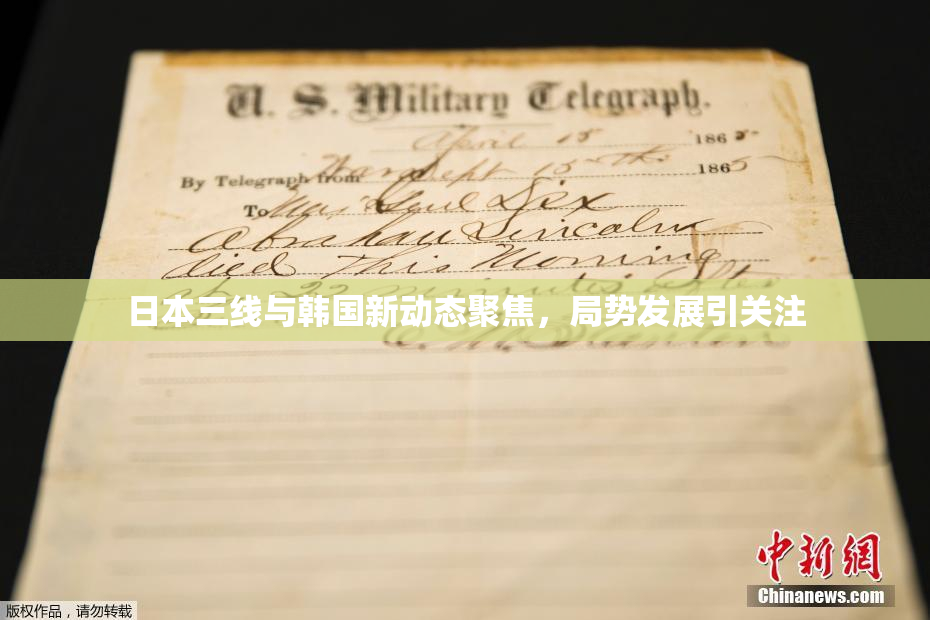 U. S. Military Telegraph.
April 15 1865
By Telegraph from War Dept 15th 1865
To Maj Genl Dix
Abraham Lincoln
died This Morning
at 22 minutes after
日本三线与韩国新动态聚焦，局势发展引关注
E. M. Stanton
中新网
Chinanews.com
版权作品，请勿转载